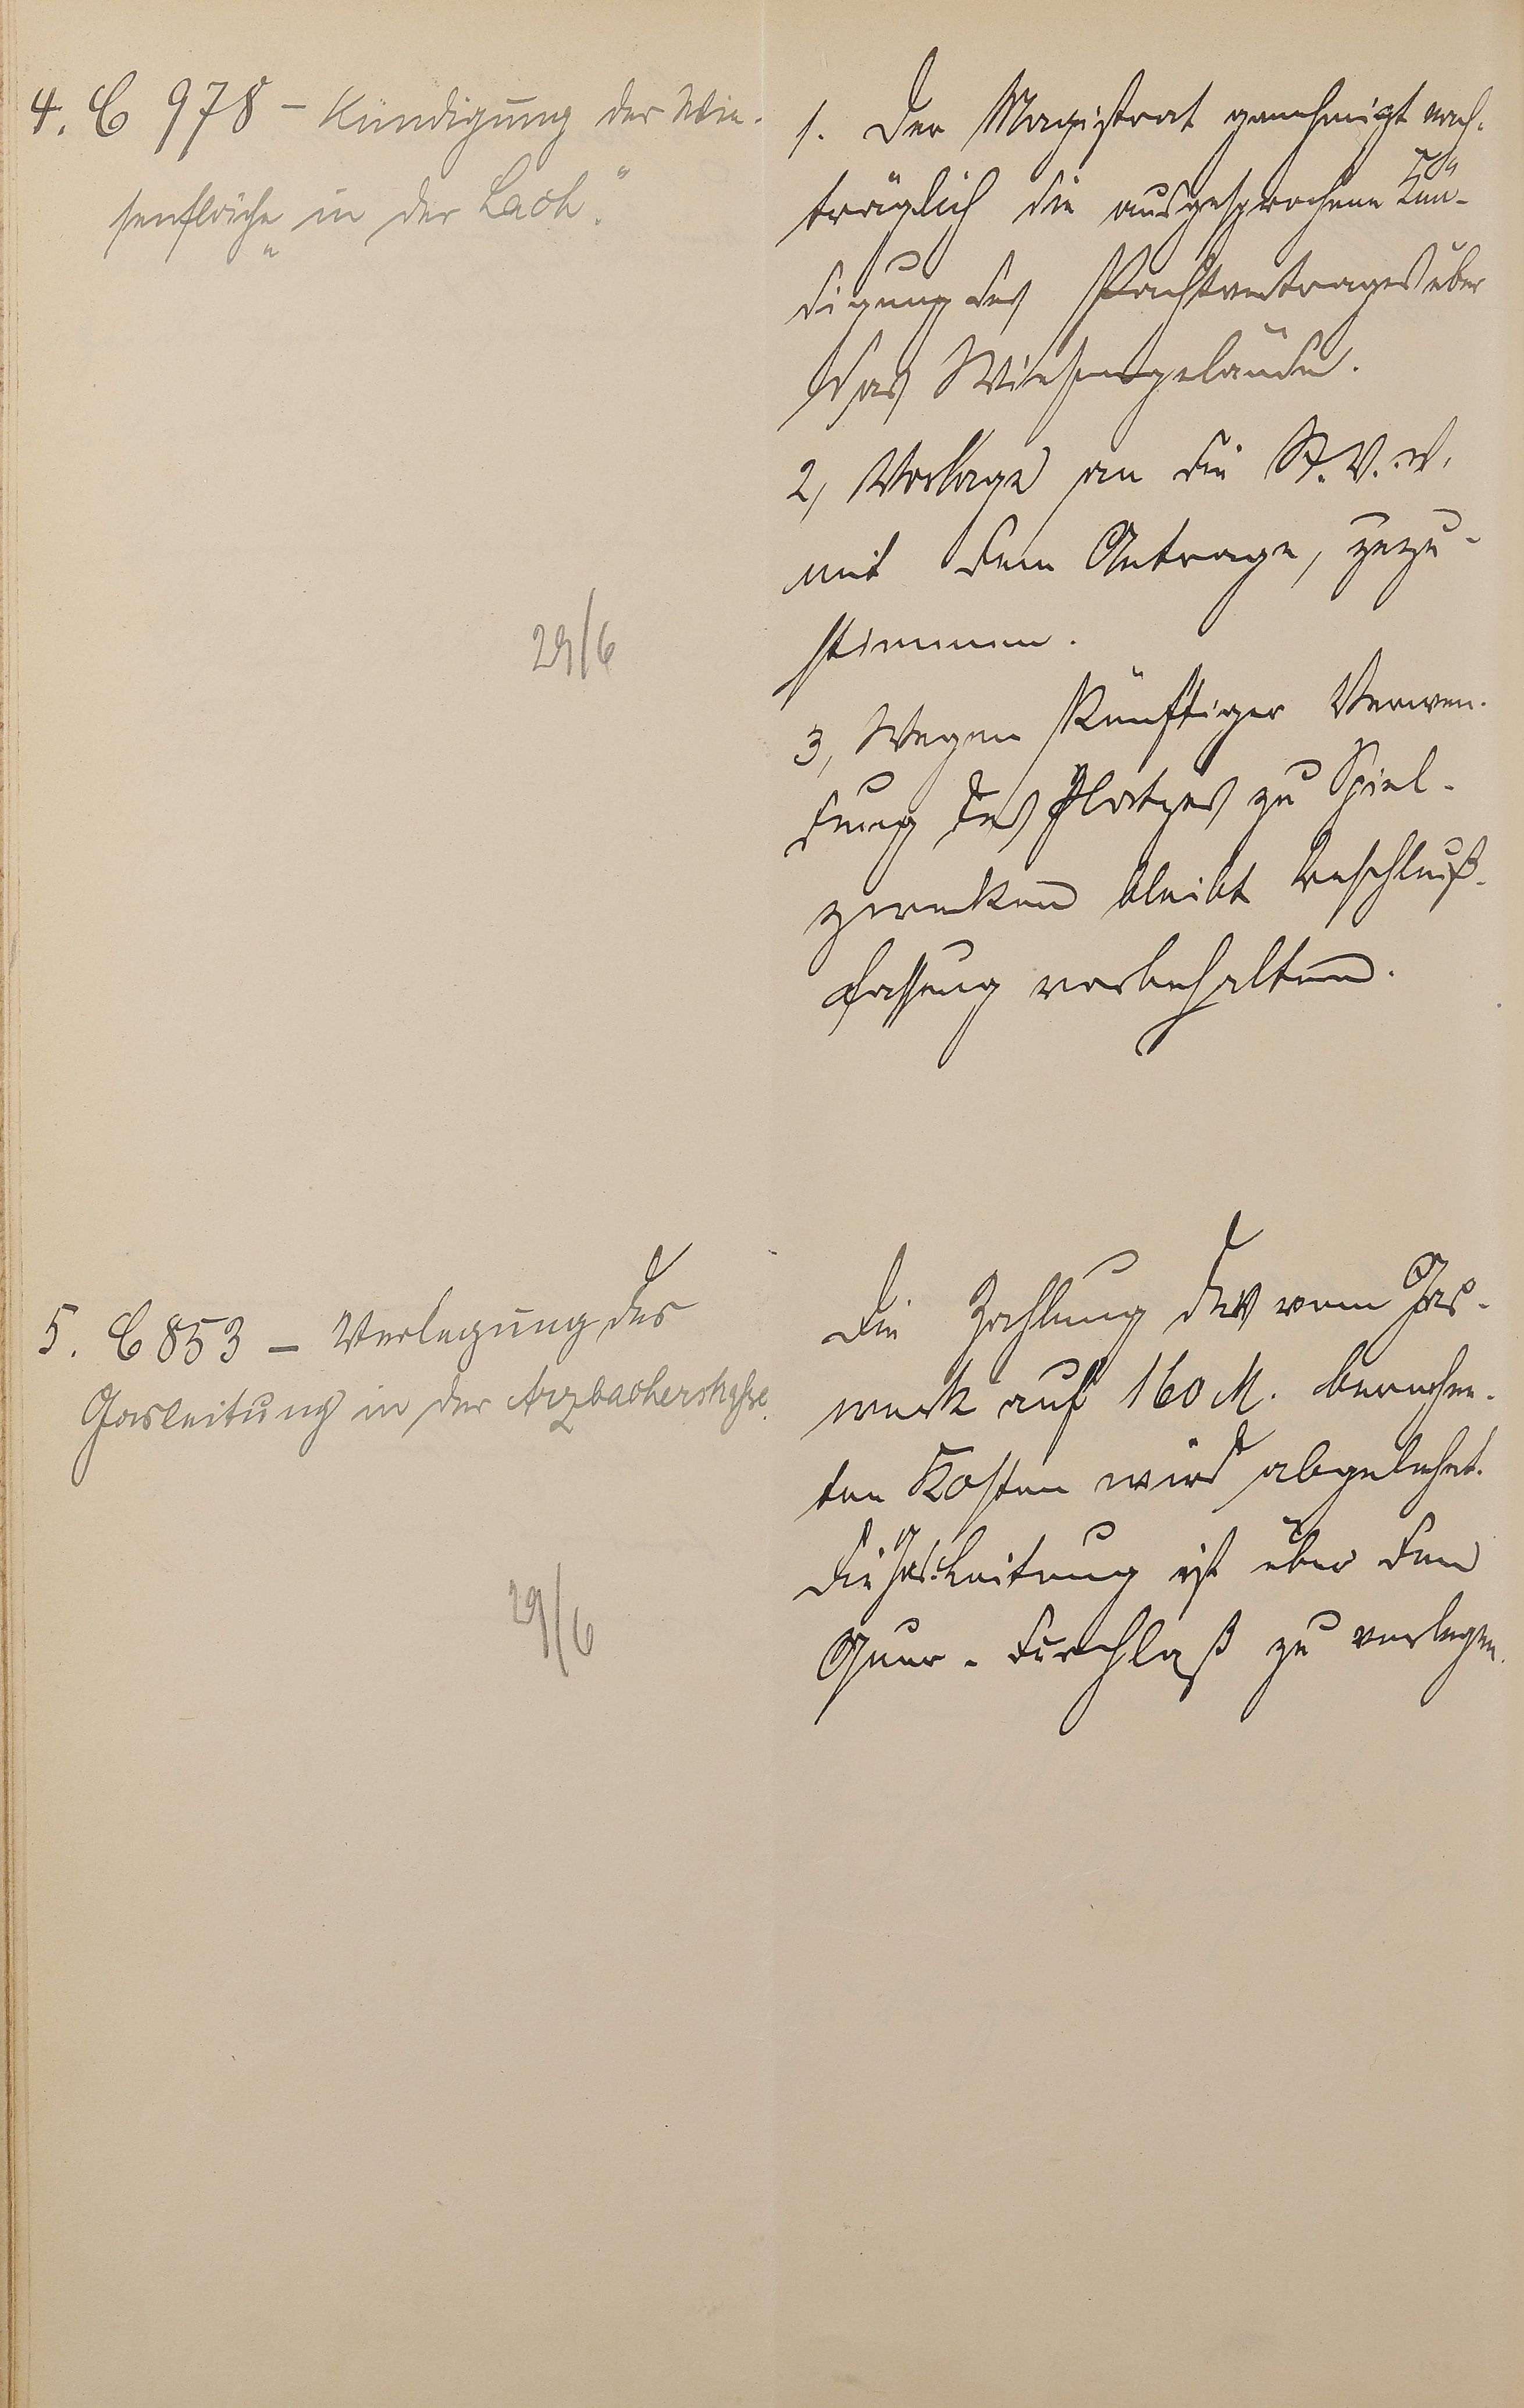 4. C 978 - Kündigung der Wie-
senfläche „in der Lach."
1. Der Magistrat genehmigt nach-
träglich die ausgesprochene Kün-
digung des Pachtvertrages über
das Wiesengelände.
2, Vorlage an die St. V. V.
mit dem Antrage, zuzu-
stimmen.
29/6
3, Wegen künftiger Verwen-
dung des Platzes zu Spiel-
zwecken bleibt Beschluß-
fassung vorbehalten.
5. C 853 - Verlegung der
Gasleitung in der Arzbacherstraße.
Die Zahlung der vom Gas-
werk auf 160 M. berechne-
ten Kosten wird abgelehnt.
Die Gas-Leitung ist über dem
Quer-Durchlaß zu verlegen.
29/6